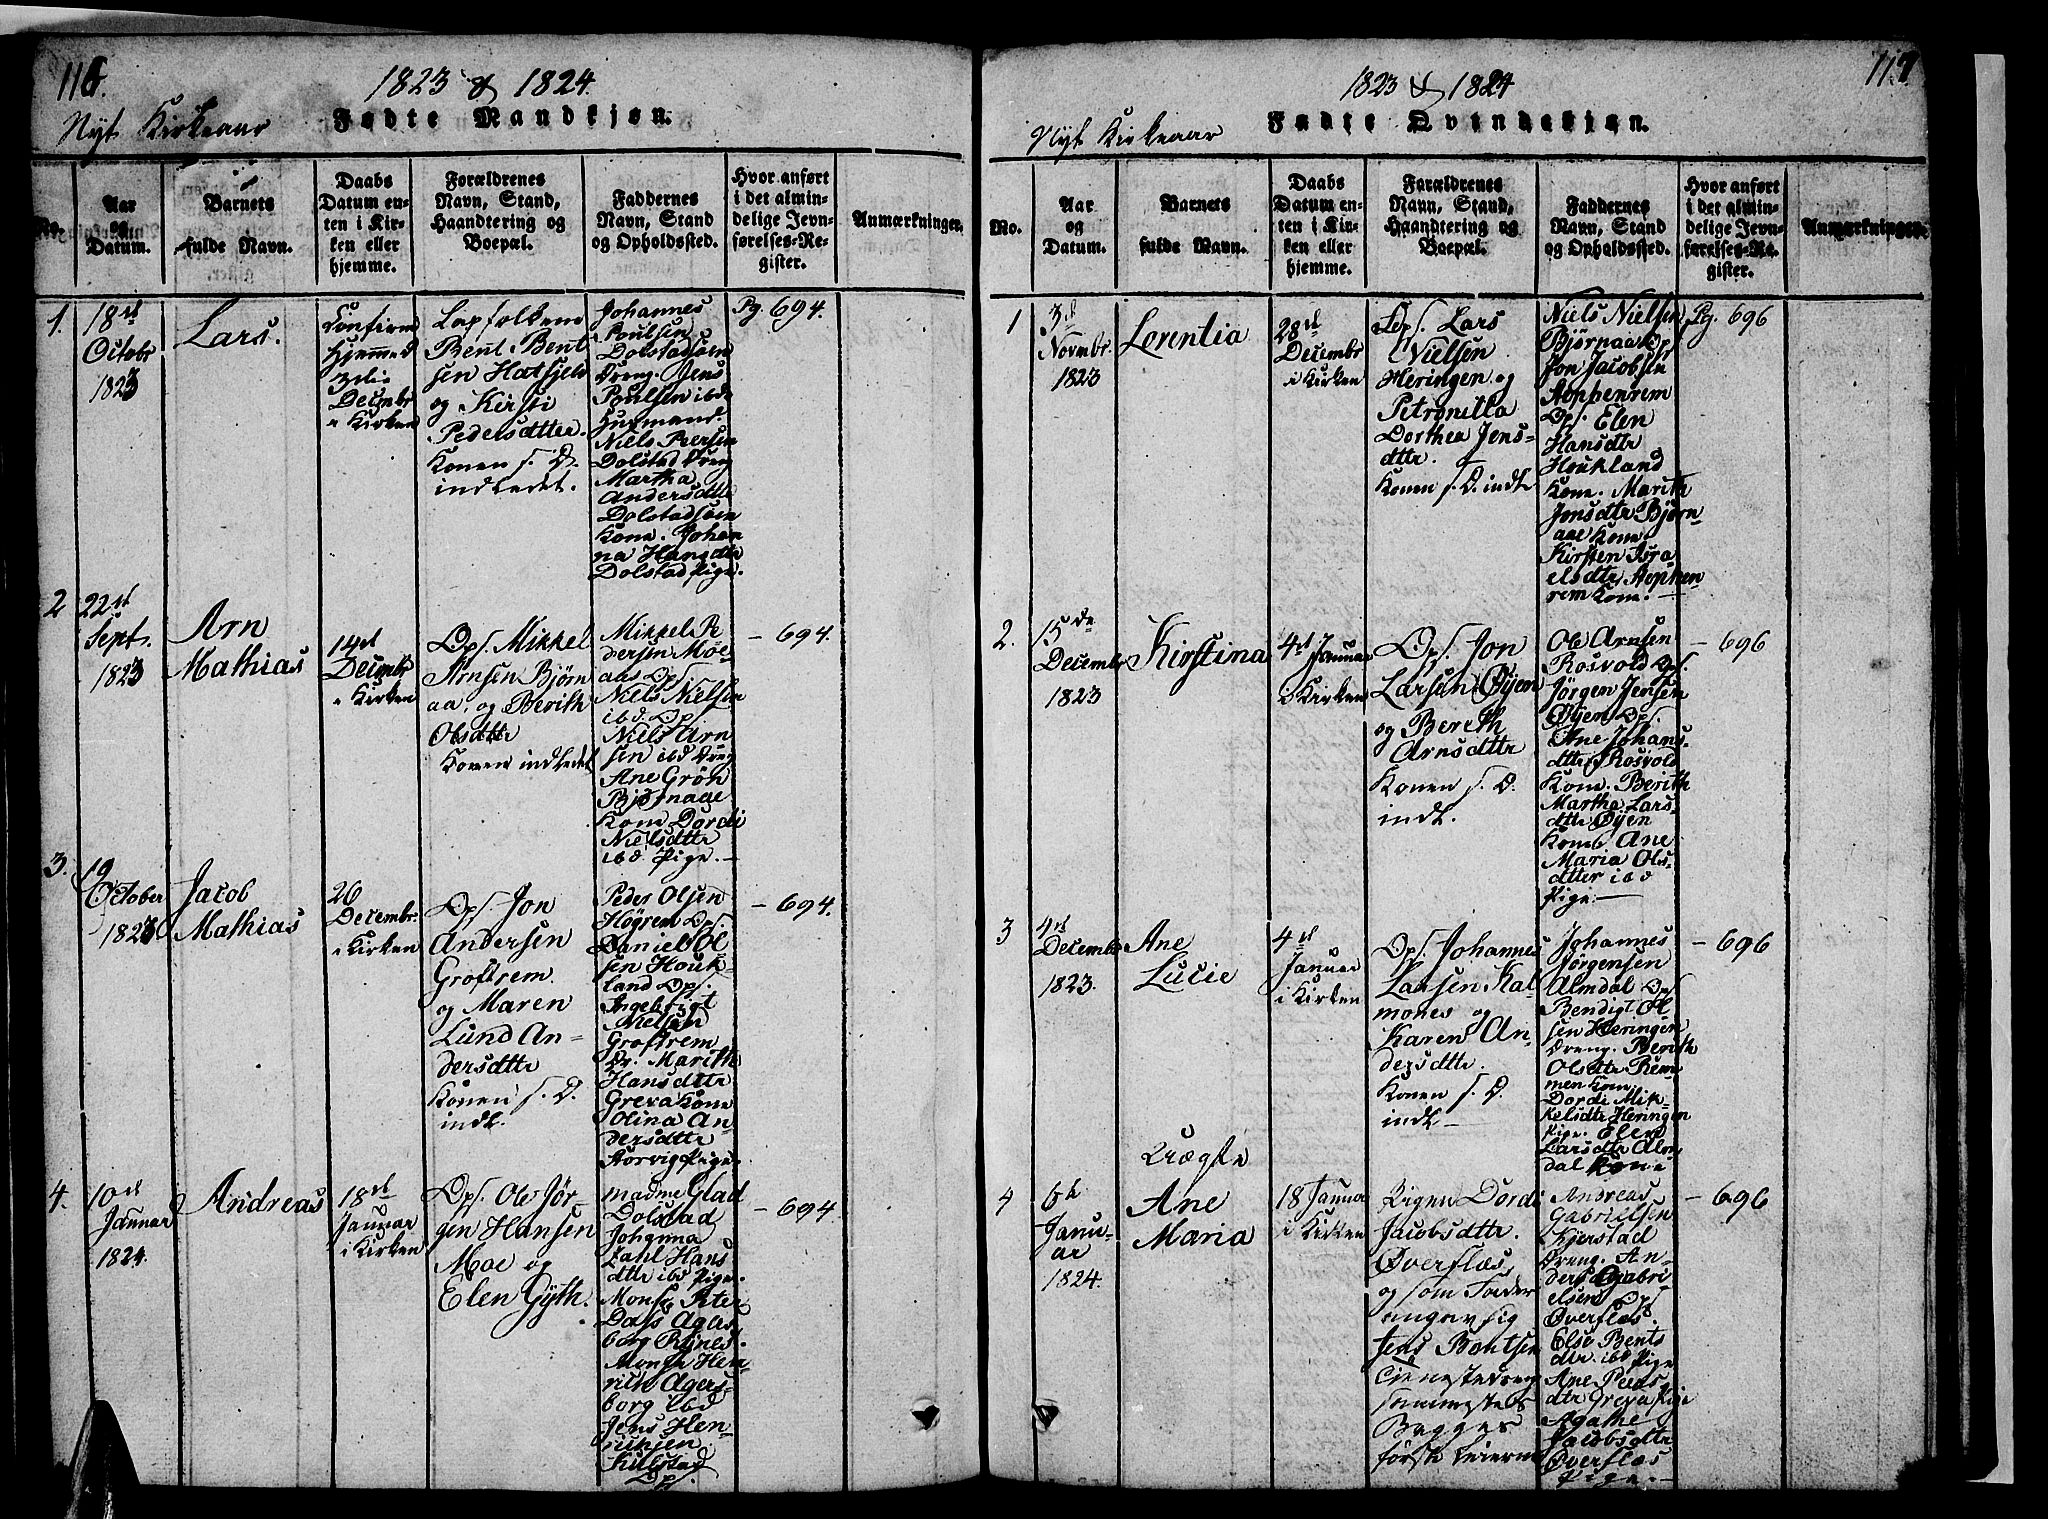 116.
1823 & 1824.
Nyt Kirkeaar
Fødte Mandkjøn.
No.
Aar
og
Datum.
Barnets
fulde Navn.
Daabs
Datum en-
ten i Kir-
ken eller
hjemme.
Forældrenes
Navn, Stand,
Haandtering og
Boepæl.
Faddernes
Navn, Stand
og Opholdssted.
Hvor anført
i det almin-
delige Jevn-
førelses-Re-
gister.
Anmærkninger.
1.
18de
Octobr
1823
Lars.
Confirm
Hjemmed
Decembr
i Kirken
Lapfolkene
Bent Bent
sen Hatfjeld
og Kirsti
Pedersdtter.
Konen s. D.
indledet.
Johannes
Poulsen
Dolstadsøen
Dreng. Jens
Poulsen ibd
Huusmand.
Niels Peersen
Dolstad Dreng
Martha
Andersdttr
Dolstadsøen
Kone. Johan
na Hansdttr
Dolstad Pige.
Pg. 694.
2
22de
Sept.
1823
Arn
Mathias
14de
Decembr
i Kirken
Ops. Mikkel
Arnsen Bjørn
aa, og Berith
Olsdttr
Konen indledet
Mikkel Pe
dersen Moe
aas Ops
Niels Nielsen
ibd. Ops.
Niels Arn
sen ibd Dreng
Ane Grøn
Bjørnaae
Kone Dordi
Nielsdttr
ibd. Pige.—
— 694.
3.
19
October
1823
Jacob
Mathias
26
Decembr.
i Kirken
Ops. Jon
Andersen
Groftrem.
og Maren
Lund An-
dersdttr
Konen s. D.
indl.
Peder Olsen
Høgrem Ops.
Daniel Ol
sen Houk-
land Ops.
Ingebrigt
Nielsen
Groftrem
Dr. Marith
Hansdttr
Greva Kone
Olina An-
dersdttr
Aorvig Pige.
— 694.
4.
10de
Januar
1824.
Andreas
18de
Januar
i Kirken
Ops. Ole Jør
gen Hansen
Moe og
Elen Gyth.
Madme Glad
Dolstad
Johanna
Dahl Hans
dttr ibd Pige.
Monsr Peter
Dass Agers
borg Rynes.
Monsr Hen-
rich Agers-
borg ibd
Jens Hen-
richsen
Kulstad
Ops.
— 694.
117.
1823 & 1824
Nyt Kirkeaar
Fødte Qvindekjøn.
No.
Aar
og
Datum.
Barnets
fulde Navn.
Daabs
Datum en-
ten i Kir-
ken eller
hjemme.
Forældrenes
Navn, Stand,
Haandtering og
Boepæl.
Faddernes
Navn, Stand
og Opholdssted.
Hvor anført
i det almin-
delige Jevn-
førelses-Re-
gister.
Anmærkninger.
1
3de
Novmbr.
1823
Lorentia
28de
Decembr
i Kirken
Ops. Lars
Nielsen
Heringen og
Petronella
Dorthea Jens-
dttr.
Konen s. D. indl
Niels Nielsen
Bjørnaa Ops
Jon Jacobsen
Aoppenrem
Ops. Elen
Hansdtr
Houkland
Kone. Marith
Jonsdttr Bjørn
aae Kone
Kirsten Isra
elsdttr Aoppen
rem Kone.—
Pg. 696
2.
15de
Decembr
1823
Kirstina
4de Januar
i Kirken
Ops. Jon
Larsen Øyen
og Bereth
Arnsdttr
Konen s. D.
indl.
Ole Arnsen
Rosvold Ops.
Jørgen Jensen
Øyen Ops.
Ane Johans-
dttr Rosvold
Kone. Berith
Martha Lars
dttr Øyen
Kone Ane
Maria Ols-
dtter ibd
Pige.—
— 696
3
4de
Decembr
1823.
Ane
Lucie
4de
Januar
i Kirken
Ops. Johannes
Larsen Kal
mones og
Karen An-
dersdttr.
Konen s. D.
indl—
Johannes
Jørgensen
Almdal Ops
Bendigt Ol
sen Heringen
Dreng. Berith
Olsdttr Rem
men Kone.
Dordi Mik-
kelsdtr Heringen
Pige. Elen
Larsdttr Alm
dal Kone
— 696
4
6te
Janu-
ar
1824.
Uægte
Ane
Maria
18 Januar
i Kirken
Pigen Dordi
Jacobsdttr.
Øverflaes
og som Fader
angav sig
Jens Bentsen
Tjenestedreng
Bagges
første Leierm
Andreas
Gabrielsen
Kjerstad
Dreng. An-
ders Gabri
elsen Ops.
Øverflaes.
Else Bents
dtr. ibd Pige
Ane Peers
dttr Greva Pige
Agathe
Jacobsdttr
Øverflaes
Pige.—
— 696